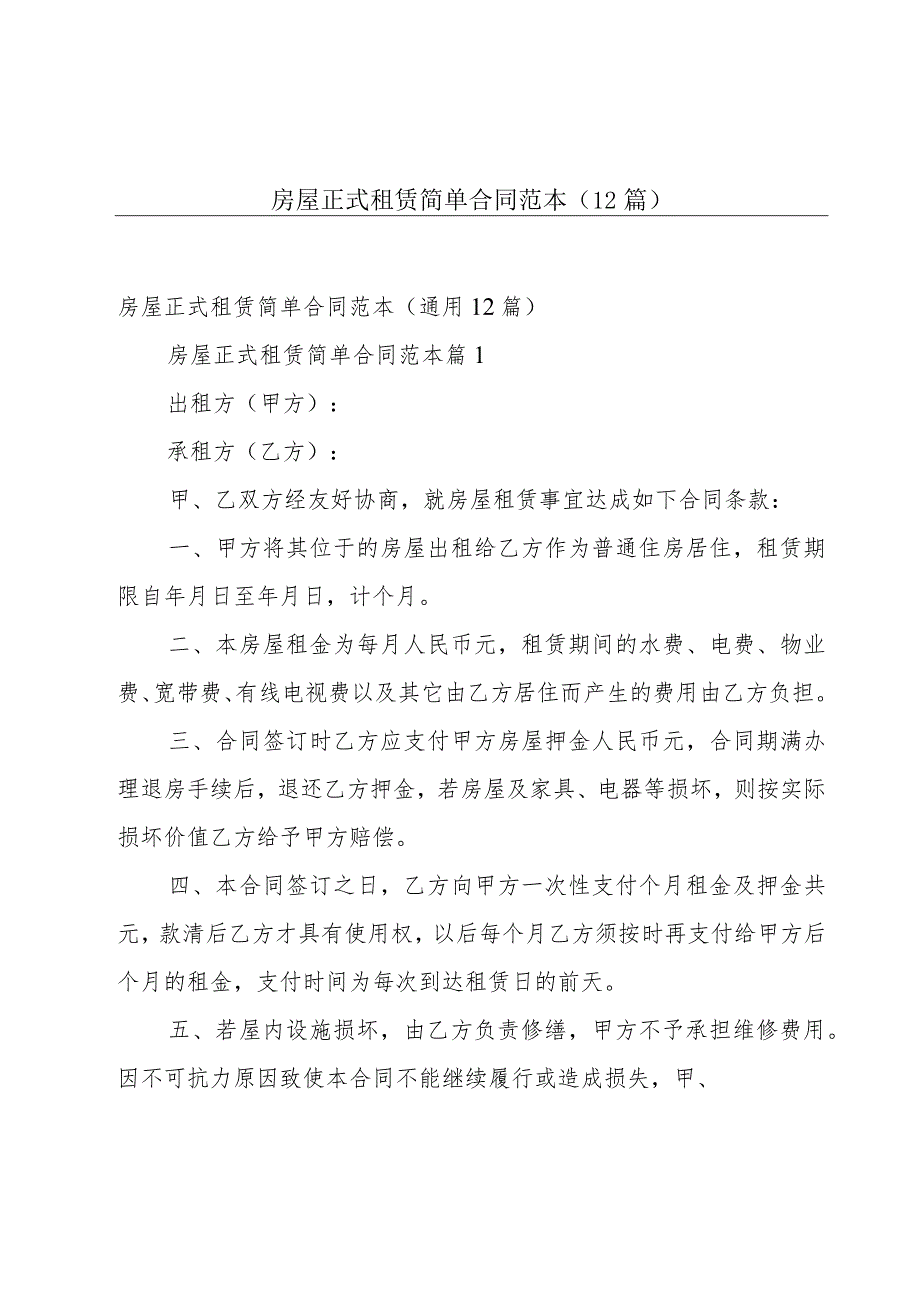 房屋正式租赁简单合同范本（12 篇）
房屋正式租赁简单合同范本（通用 12 篇）
房屋正式租赁简单合同范本篇 1
出租方（甲方）：
承租方（乙方）：
甲、乙双方经友好协商，就房屋租赁事宜达成如下合同条款：
一、甲方将其位于的房屋出租给乙方作为普通住房居住，租赁期
限自年月日至年月日，计个月。
二、本房屋租金为每月人民币元，租赁期间的水费、电费、物业
费、宽带费、有线电视费以及其它由乙方居住而产生的费用由乙方负担。
三、合同签订时乙方应支付甲方房屋押金人民币元，合同期满办
理退房手续后，退还乙方押金，若房屋及家具、电器等损坏，则按实际
损坏价值乙方给予甲方赔偿。
四、本合同签订之日，乙方向甲方一次性支付个月租金及押金共
元，款清后乙方才具有使用权，以后每个月乙方须按时再支付给甲方后
个月的租金，支付时间为每次到达租赁日的前天。
五、若屋内设施损坏，由乙方负责修缮，甲方不予承担维修费用。
因不可抗力原因致使本合同不能继续履行或造成损失，甲、